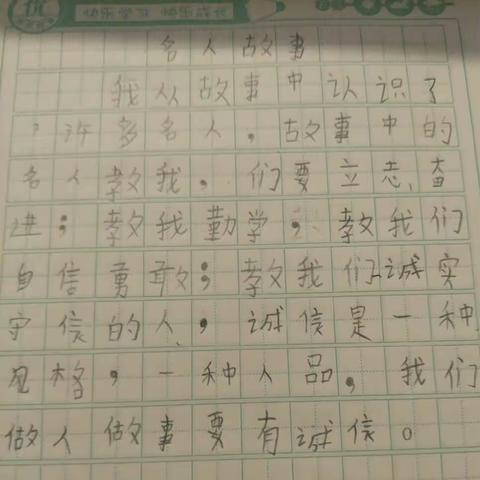 优
快乐学习 快乐成长
名人故事
我从故事中认识了
，许多名人，故事中的
名人教我，们要立志、奋
进；教我勤学；教我们
自信勇敢；教我们诚实
守信的人，诚信是一种
风格，一种人品，我们
做人做事要有诚信。